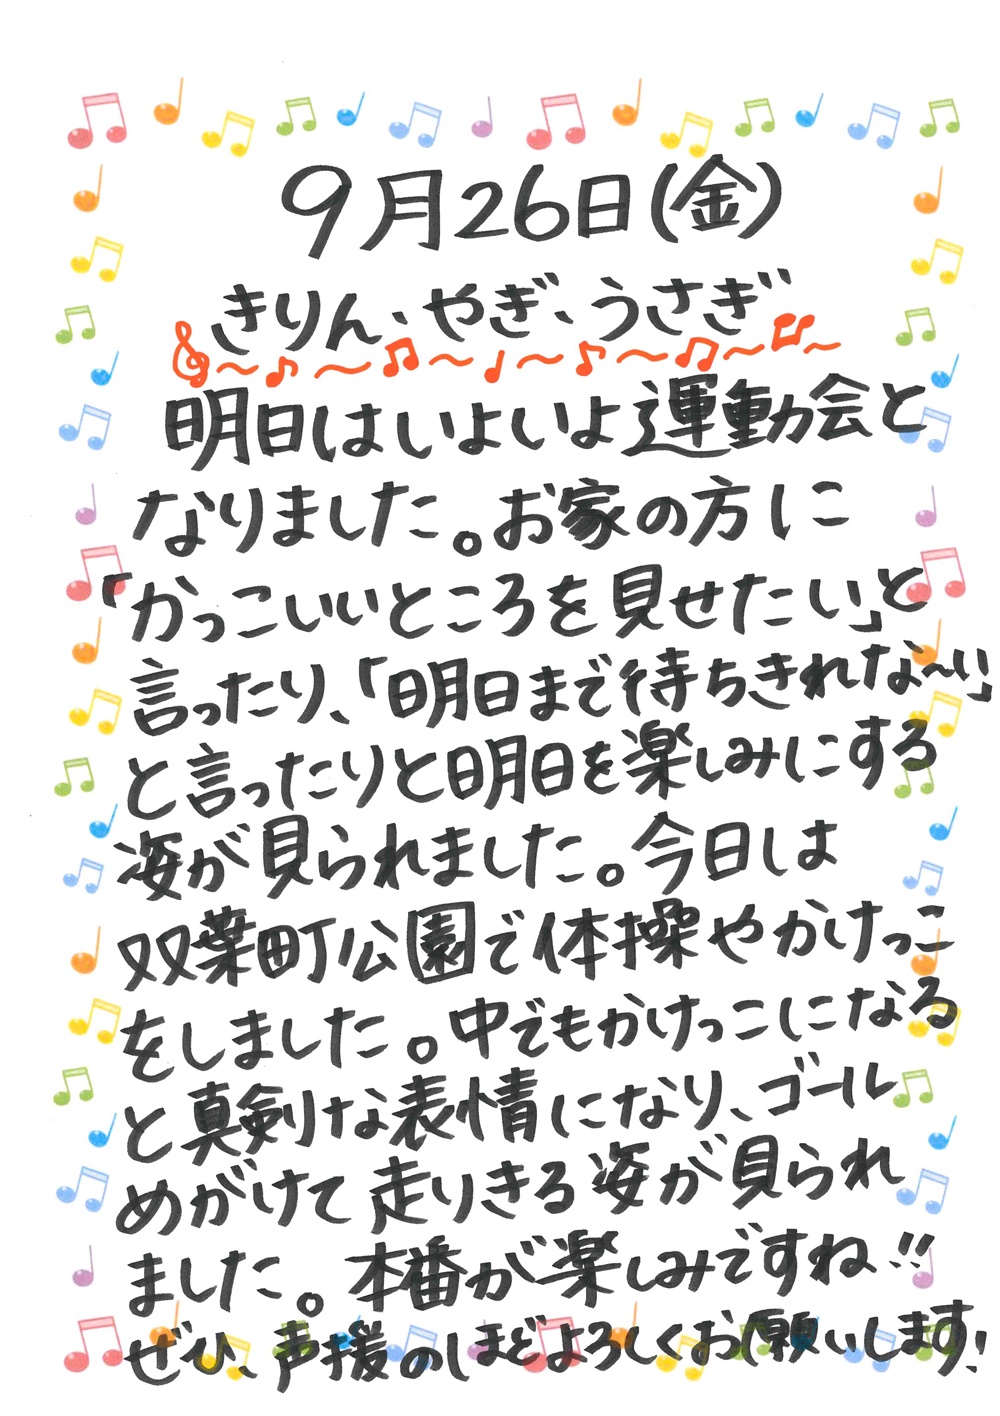 9月26日(金)
きりん、やぎ、うさぎ
明日はいよいよ運動会と
なりました。お家の方に
「かっこいいところを見せたい」と
言ったり、「明日まで待ちきれな〜い」
と言ったりと明日を楽しみにする
姿が見られました。今日は
双葉町公園で体操やかけっこ
をしました。中でもかけっこになる
と真剣な表情になり、ゴール
めがけて走りきる姿が見られ
ました。本番が楽しみですね!!
ぜひ、声援のほどよろしくお願いします!